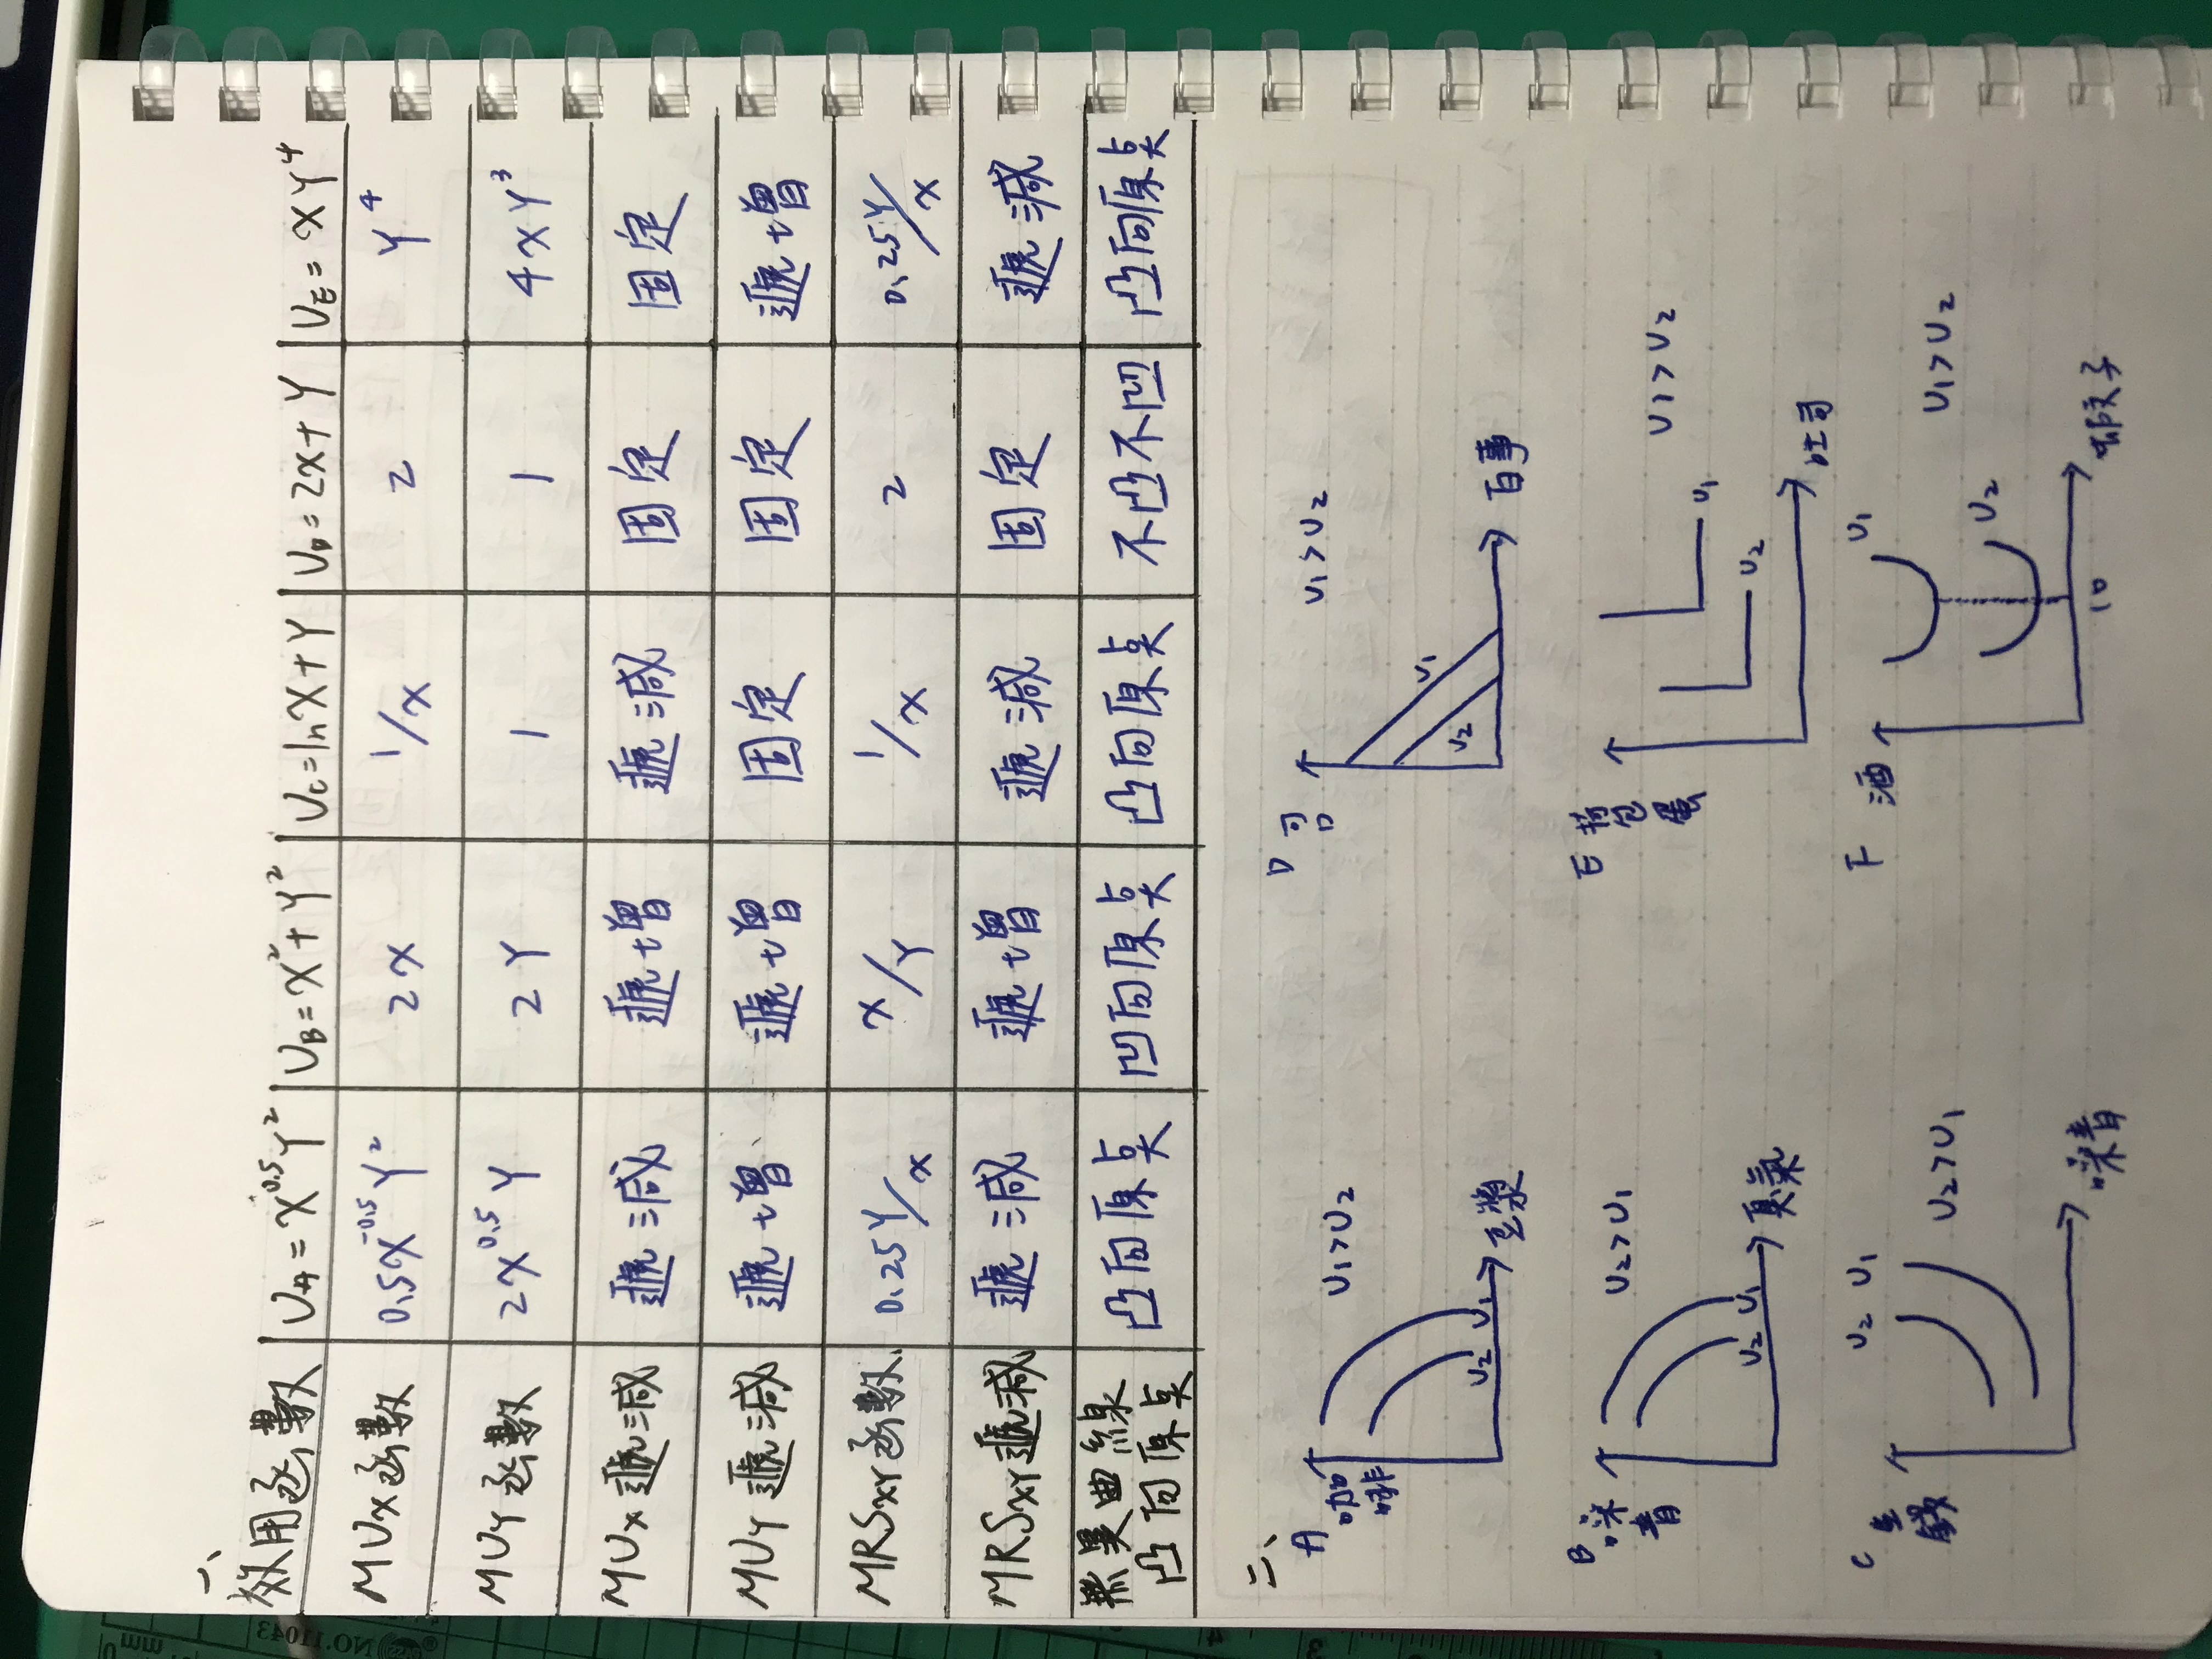 一、
效用函數 U_A = X^0.5 Y^2 U_B = X^2 + Y^2 U_C = ln X + Y U_D = 2X + Y U_E = XY^4
MUx函數 0.5X^-0.5 Y^2 2X 1/X 2 Y^4
MUY函數 2X^0.5 Y 2Y 1 1 4XY^3
MUx遞減 遞減 遞增 遞減 固定 固定
MUY遞減 遞增 遞增 固定 固定 遞增
MRSXY函數 0.25Y/X X/Y 1/X 2 0.25Y/X
MRSXY遞減 遞減 遞增 遞減 固定 遞減
無異曲線
凸向原点 凸向原点 凹向原点 凸向原点 不凸不凹 凸向原点
二、
A 咖啡 U1 > U2
U2 U1 豆漿
D 可口 U1 > U2
U1
U2
百事
B 噪音 U2 > U1
U2 U1 臭氣
E 荷包蛋 U1 > U2
U1
U2
吐司
C 金錢 U2 U1
U2 > U1
噪音
F 酒 U1
U1 > U2
U2
10 蚊子
NO.1043
mm 0
3
4